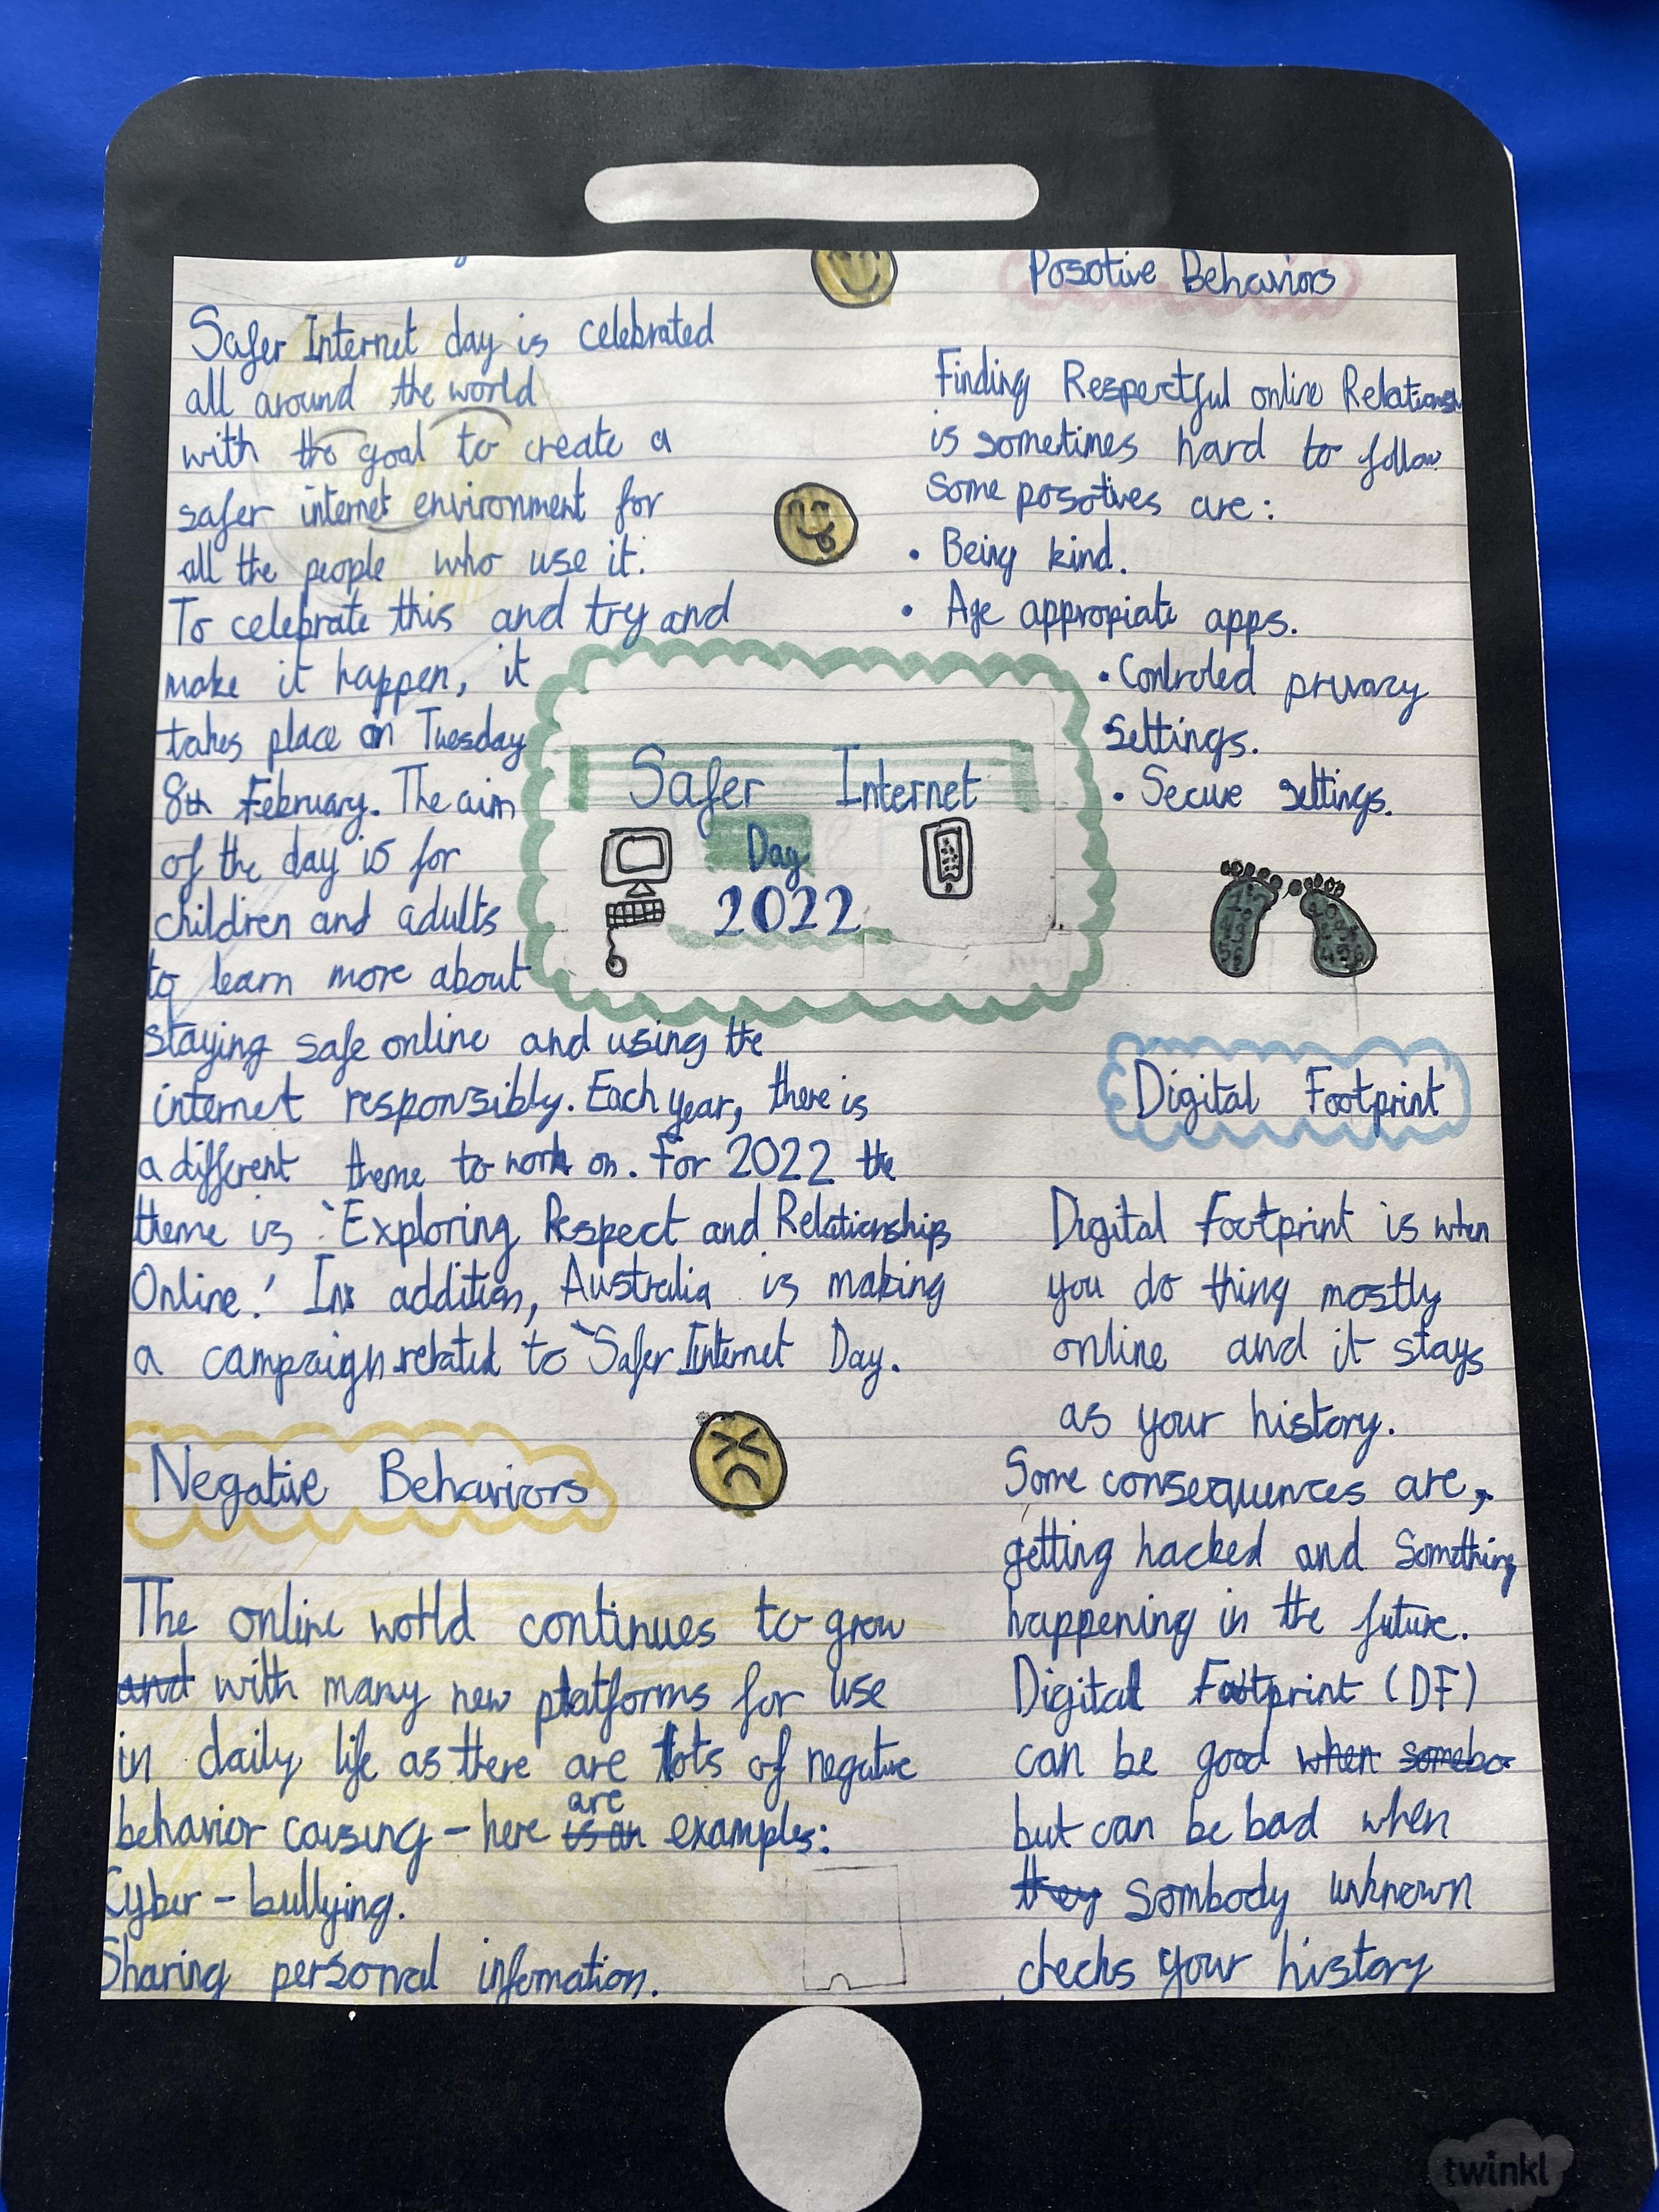 Safer Internet day is celebrated
all around the world
with the goal to create a
safer internet environment for
all the people who use it.
To celebrate this and try and
make it happen, it
takes place on Tuesday
8th February. The aim
of the day is for
children and adults
to learn more about
staying safe online and using the
internet responsibly. Each year, there is
a different theme to work on. For 2022 the
theme is 'Exploring Respect and Relationships
Online.' In addition, Australia is making
a campaign related to Safer Internet Day.
Safer Internet
Day
2022
Negative Behaviors
The online world continues to grow
and with many new platforms for use
in daily life as there are lots of negative
behavior causing - here is an are examples:
Cyber - bullying.
Sharing personal infomation.
Posotive Behaviors
Finding Respectful online Relationsh
is sometimes hard to follow
Some posotives are:
• Being kind.
• Age appropiate apps.
• Controled privacy
settings.
• Secure settings.
Digital Footprint
Digital Footprint is when
you do thing mostly
online and it stays
as your history.
Some consequences are,
getting hacked and Something
happening in the future.
Digital Footprint (DF)
can be good when somebo
but can be bad when
they Sombody unknown
checks your history
twinkl